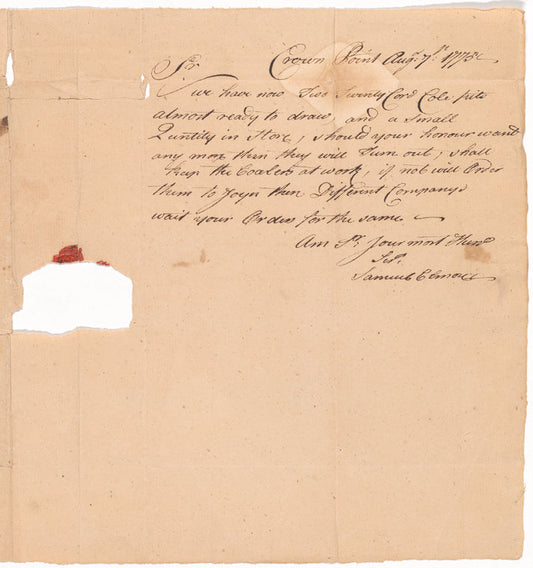 Crown Point Augt. 7th. 1775
Sr.
we have now Two Twenty Cord Cole pits
almost ready to draw, and a Small
Quntity in Store, should your honour want
any more then they will Turn out, shall
keep the Coalers at work, if not will Order
them to Joyn their Different Companys
wait your Orders for the same
Am Sr. Your most Hum
Sert.
Samuel Elmore